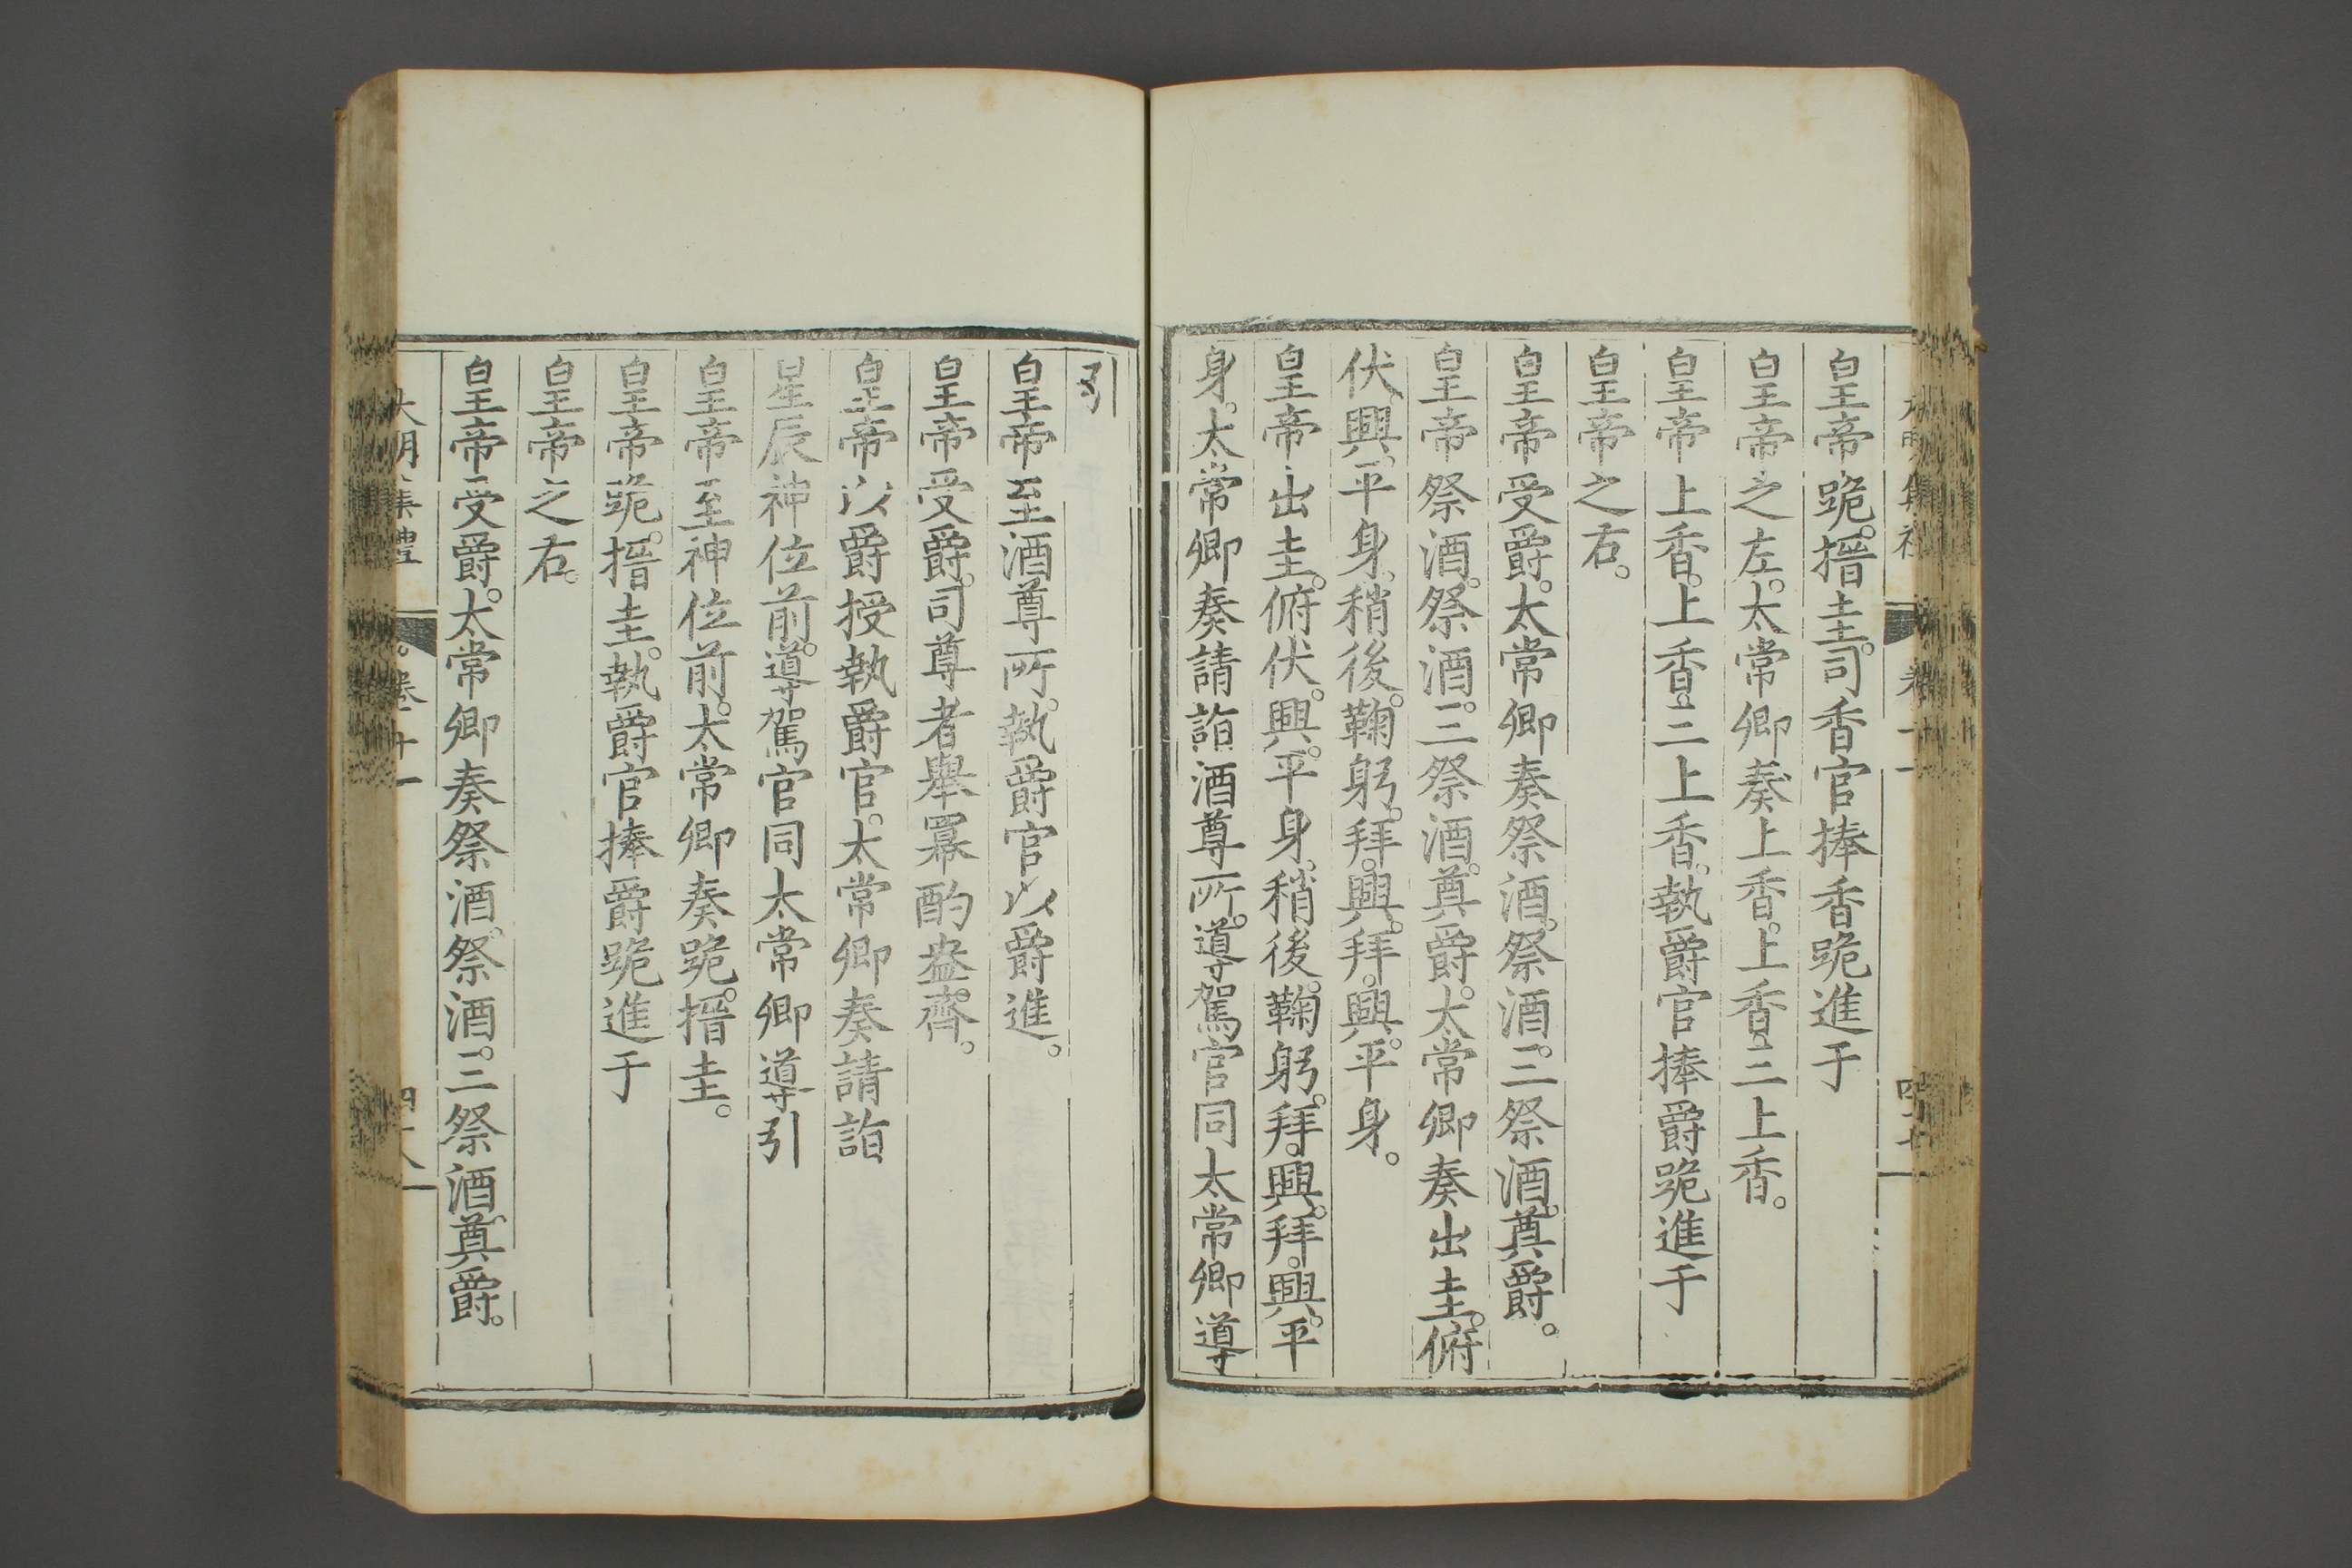 皇帝跪。搢圭。司香官捧香跪進于
皇帝之左。太常卿奏上香。上香。三上香。
皇帝上香。上香。三上香。執爵官捧爵跪進于
皇帝之右。
皇帝受爵。太常卿奏祭酒。祭酒。三祭酒。奠爵。
皇帝祭酒。祭酒。三祭酒。奠爵。太常卿奏出圭。俯
伏。興。平身。稍後。鞠躬。拜。興。拜。興。平身。
皇帝出圭。俯伏。興。平身。稍後。鞠躬。拜。興。拜。興。平
身。太常卿奏請詣酒尊所。導駕官同太常卿導
引
皇帝至酒尊所。執爵官以爵進。
皇帝受爵。司尊者舉羃酌盎齊。
皇帝以爵授執爵官。太常卿奏請詣
星辰神位前。導駕官同太常卿導引
皇帝至神位前。太常卿奏跪。搢圭。
皇帝跪。搢圭。執爵官捧爵跪進于
皇帝之右。
皇帝受爵。太常卿奏祭酒。祭酒。三祭酒。奠爵。
大明集禮 卷十一 四十八